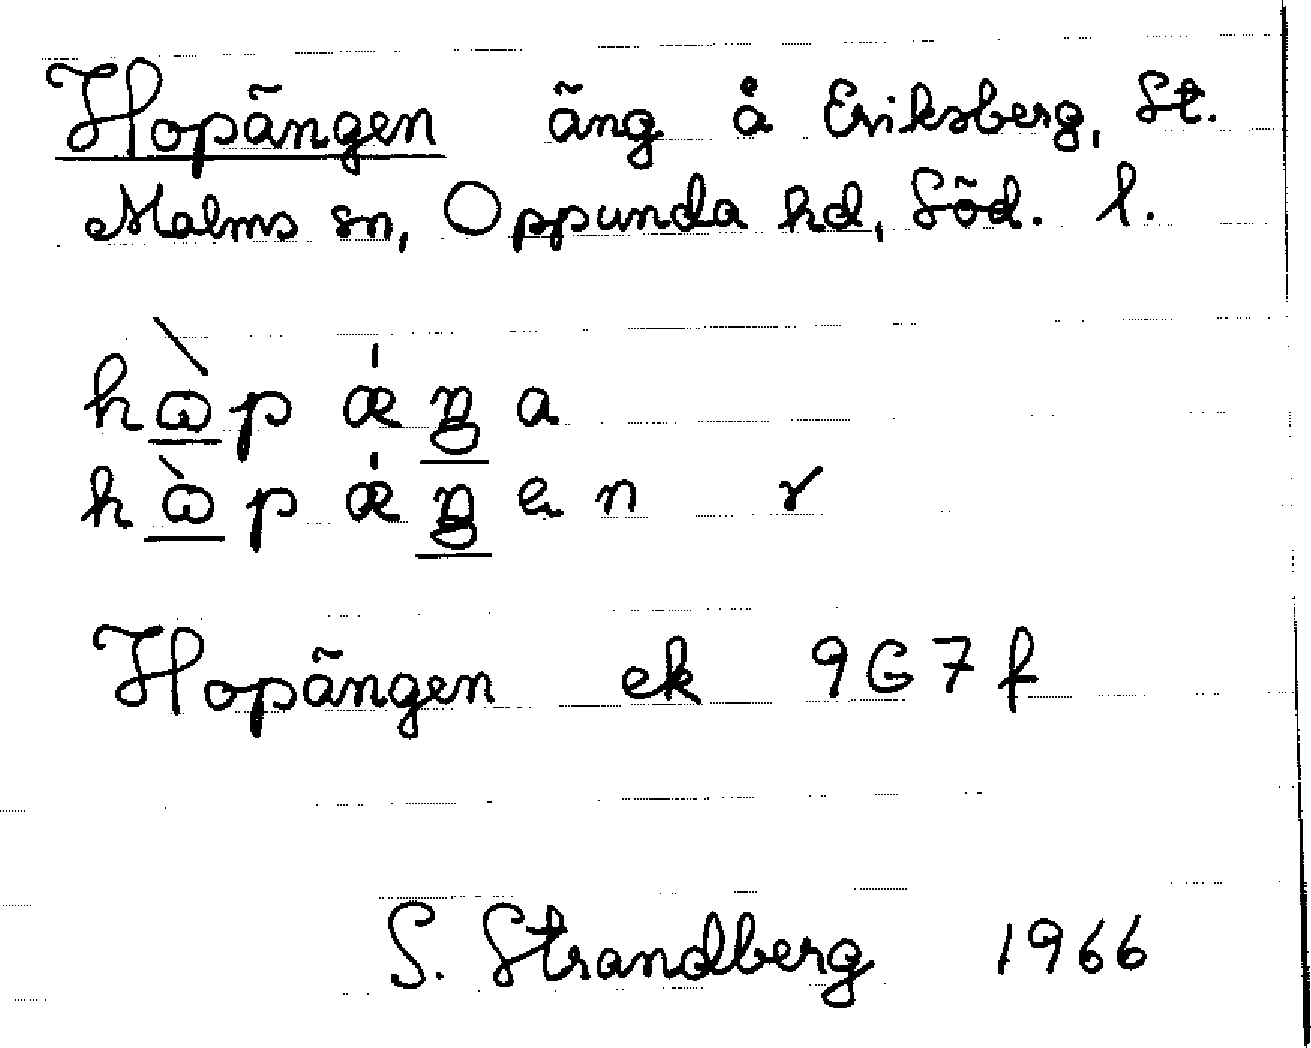 Hopängen äng å Eriksberg, St.
Malms sn, Oppunda hd, Söd. l.
hὼp ǽŋa
hὼp ǽŋen r
Hopängen ek 9G7f
S. Strandberg 1966